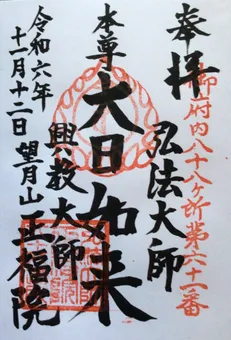 奉拝
御府内八十八ヶ所第六十一番
弘法大師
本尊大日如来
興教大師
令和六年
十一月十二日
望月山
正福院